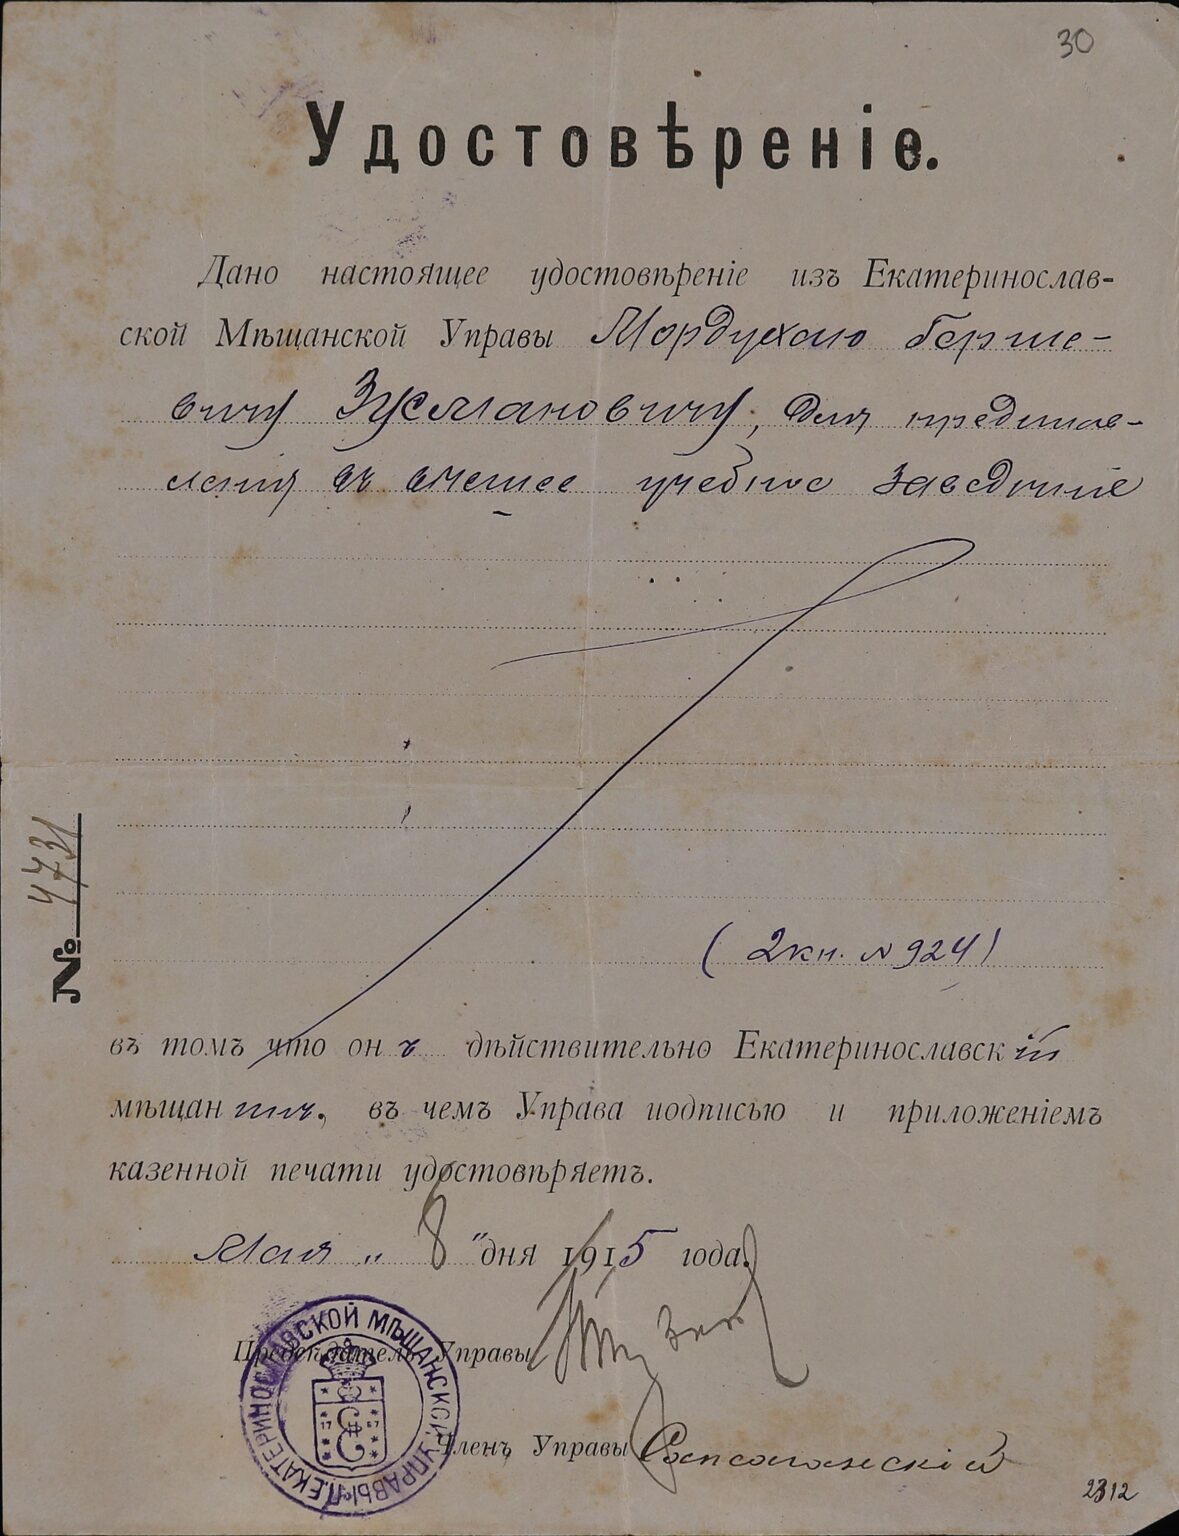 30
Удостовѣреніе.
Дано настоящее удостовѣреніе изъ Екатеринослав-
ской Мѣщанской Управы Мордухаю Берше-
вичу Зусмановичу, для представ-
ленія въ высшее учебное заведеніе
№ 4731
(2 кн. № 924)
въ томъ что онъ дѣйствительно Екатеринославскій
мѣщанинъ, въ чемъ Управа подписью и приложеніемъ
казенной печати удостовѣряетъ.
Мая „ 8 " дня 1915 года.
Предсѣдатель Управы
Членъ Управы
ЕКАТЕРИНОСЛАВСКОЙ МѢЩАНСКОЙ УПРАВЫ
17 87
2312